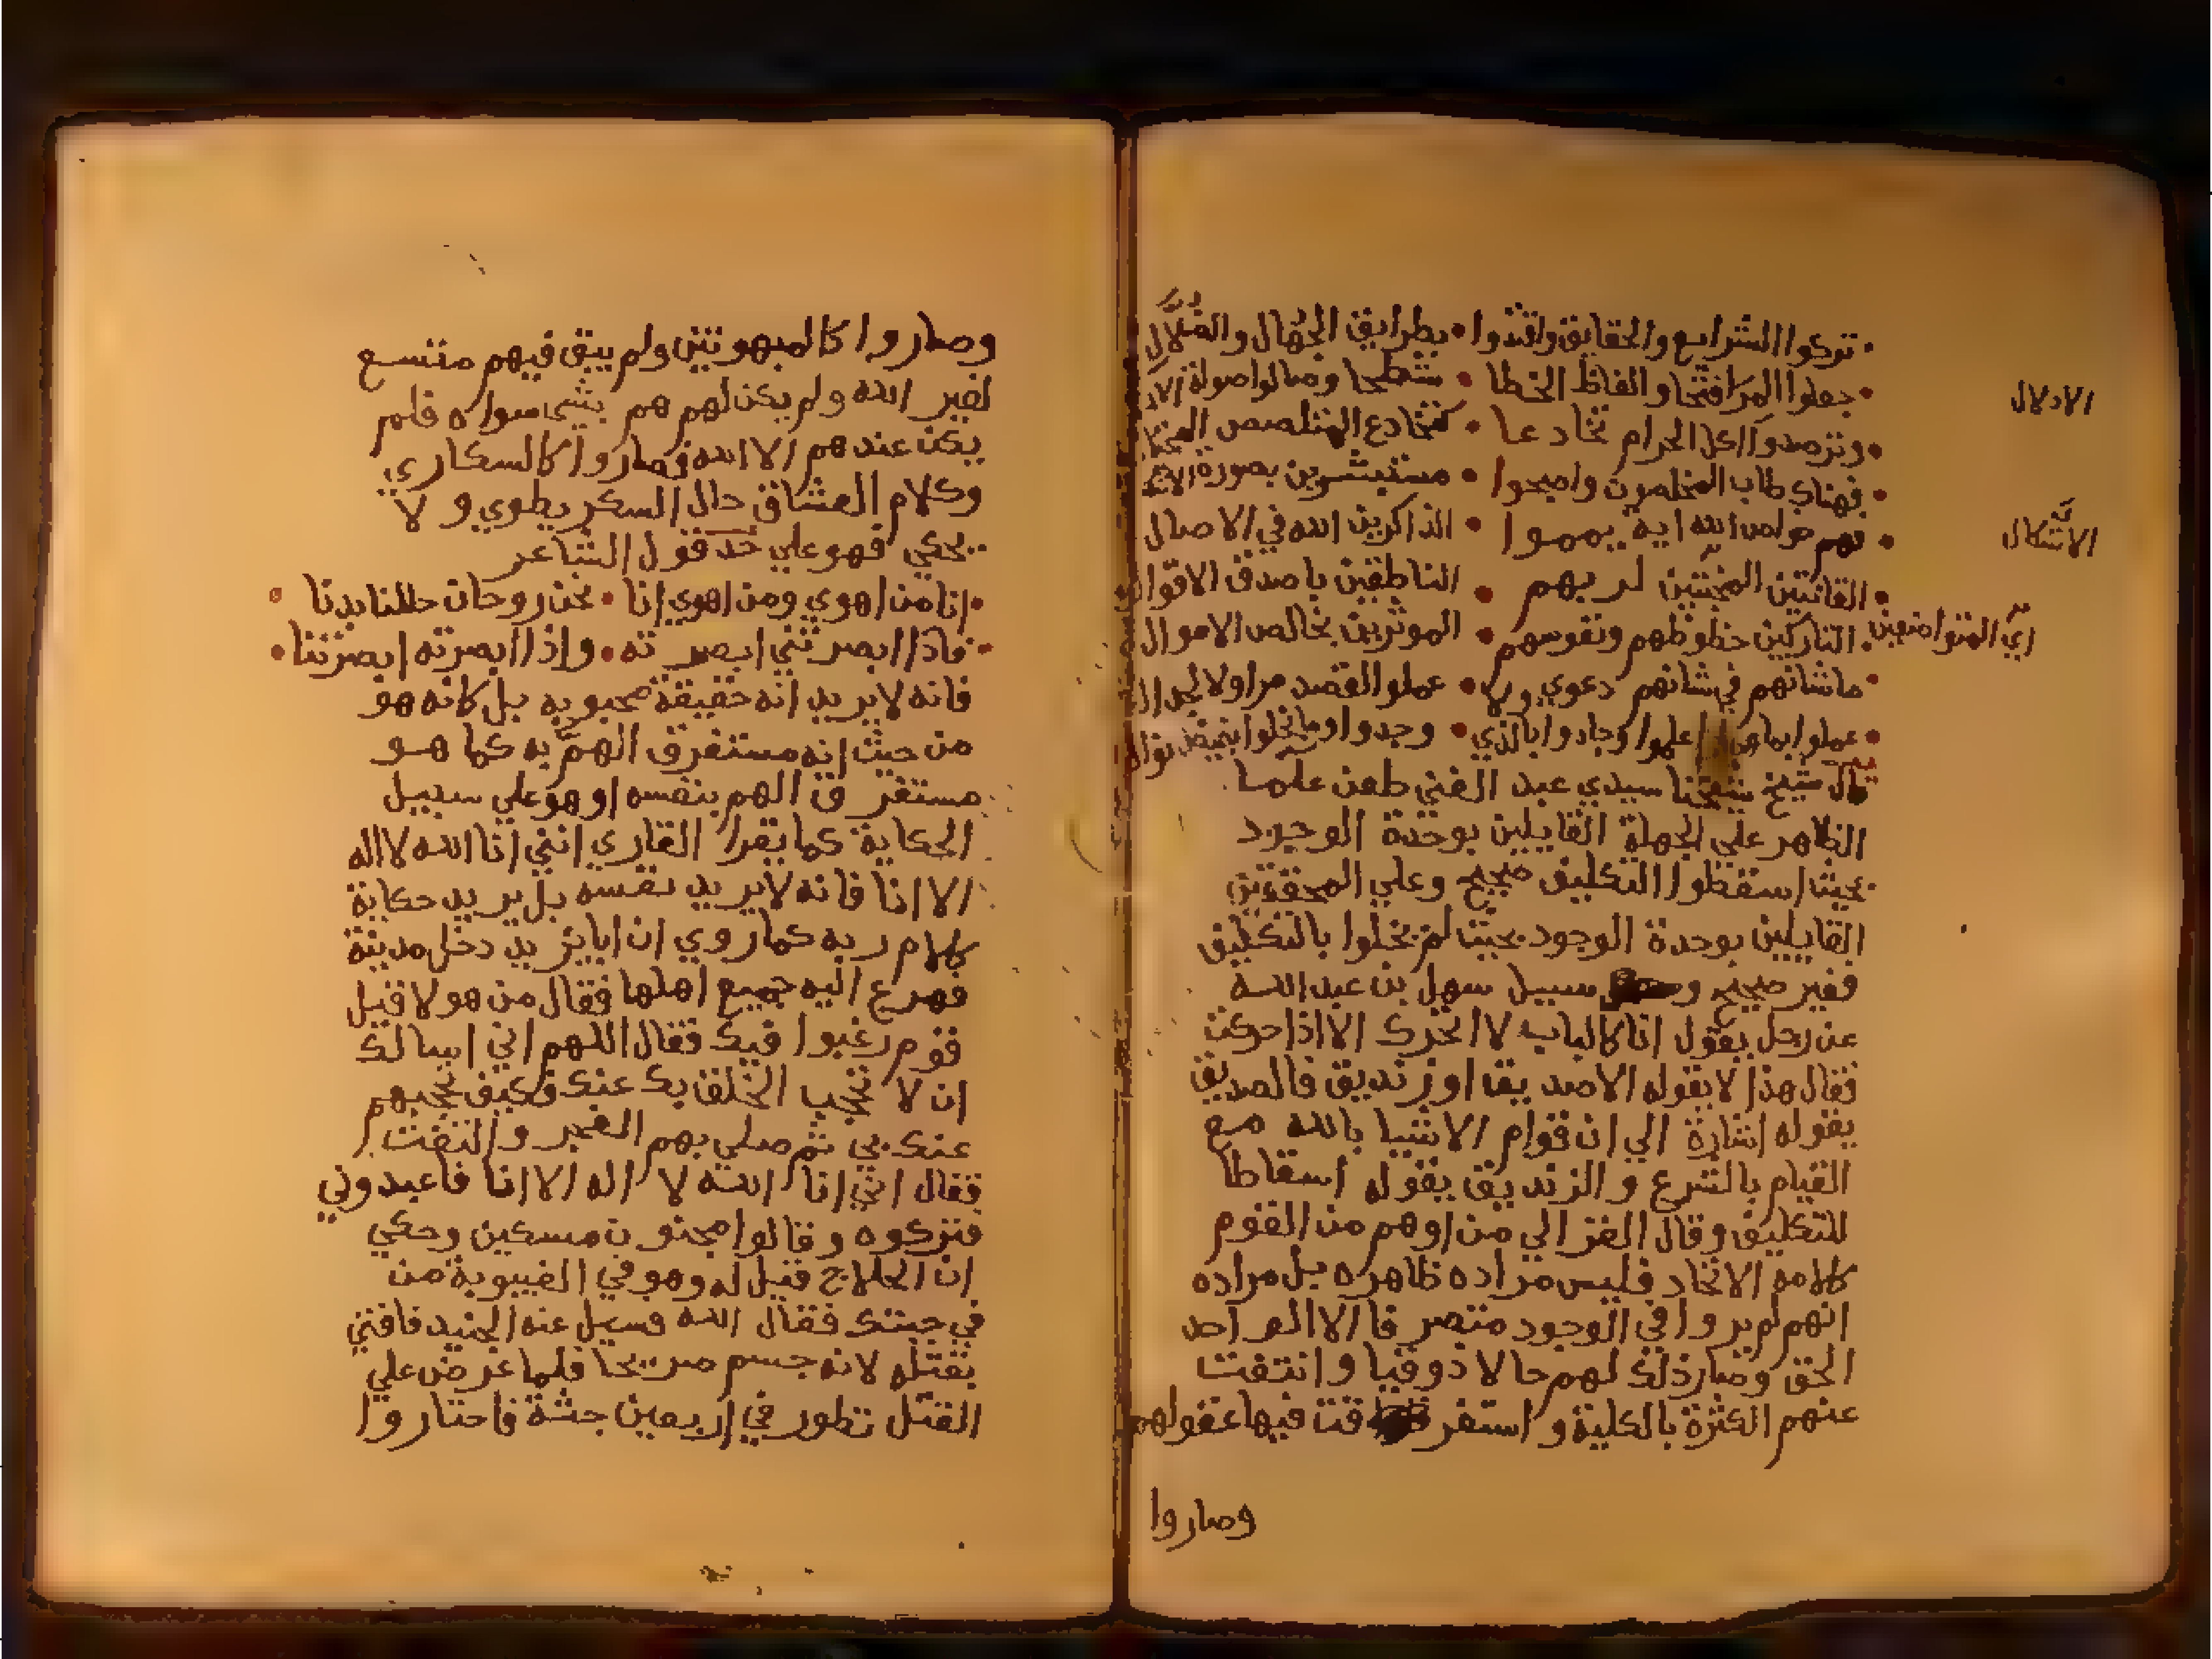 تركوا الشرايع والحقايق واقتدوا • بطرايق الجهال والضلال
جعلوا المرا فتحا والفاظ الخطا • شطحا وصالوا صولة الادلال
وترصدوا اكل الحرام تخادعا • كتخادع المتلصص المحتال
فهناك طاب المخلصون واصبحوا • مستبشرين بصورة
فهم خواص الله ايه يمموا • الذاكرين الله في الاصال
القانتين المخبتين لربهم • الناطقين باصدق الاقوال
التاركين حظوظهم ونفوسهم • الموثرين بخالص الاموال
ماشانهم في شانهم دعوي ولا • عملوا القصد مرا ولا لجدال
عملوا بما علموا وجادوا بالذي • وجدوا وما بخلوا بفيض نوال
قال شيخ شيخنا سيدي عبد الغني طعن علما
الظاهر علي الجهلة القايلين بوحدة الوجود
بحيث اسقطوا التكليف صحيح وعلي المحققين
القايلين بوحدة الوجود بحيث لم يخلوا بالتكليف
فغير صحيح سبيل سهل بن عبد الله
عن رجل يقول انا كالباب لا اتحرك الا اذا حركت
فقال هذا لا يقوله الا صديقا او زنديق فالصديق
يقوله اشارة الي ان قوام الاشيا بالله مع
القيام بالشرع والزنديق يقوله اسقاطا
للتكليف وقال الغزالي من اوهم من القوم
كلامه الاتحاد فليس مراده ظاهره بل مراده
انهم لم يروا في الوجود متصرفا الا الواحد
الحق وصار ذلك لهم حالا ذوقيا وانتفت
عنهم الكثرة بالكلية واستغرقت فيها عقولهم
وصاروا
الادلال
الاشكال
اي المتواضعين
وصاروا كالمبهوتين ولم يبق فيهم متسع
لغير الله ولم يكن لهم هم بشي سواه فلم
يكن عندهم الا الله فصاروا كالسكاري
وكلام العشاق حال السكر يطوي ولا
يحكي فهو علي حد قول الشاعر
• انا من اهوي ومن اهوي انا • نحن روحان حللنا بدنا •
• فاذا ابصرتني ابصرته • واذا ابصرته ابصرتنا •
فانه لا يريد انه حقيقة محبوبه بل كانه هو
من حيث انه مستغرق الهم به كما هو
مستغرق الهم بنفسه او هو علي سبيل
الحكاية كما يقرا القاري انني انا الله لا اله
الا انا فانه لا يريد نفسه بل يريد حكاية
كلام ربه كما روي ان ابا يزيد دخل مدينة
فهرع اليه جميع اهلها فقال من هولا قيل
قوم رغبوا فيك فقال اللهم اني اسالك
ان لا تحجب الخلق بك عنك فكيف تحجبهم
عنك بي ثم صلي بهم الفجر والتفت
فقال اني انا الله لا اله الا انا فاعبدوني
فتركوه وقالوا مجنون مسكين وحكي
ان الحلاج قيل له وهو في الغيبوبة من
في جبتك فقال الله فسيل عنه الجنيد فافتي
بقتله لانه جسم صريحا فلما عرض علي
القتل تطور في اربعين جثة فاحتاروا